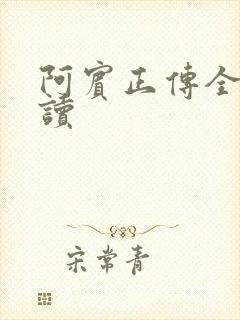 阿賓正傳全
讀
宋常青